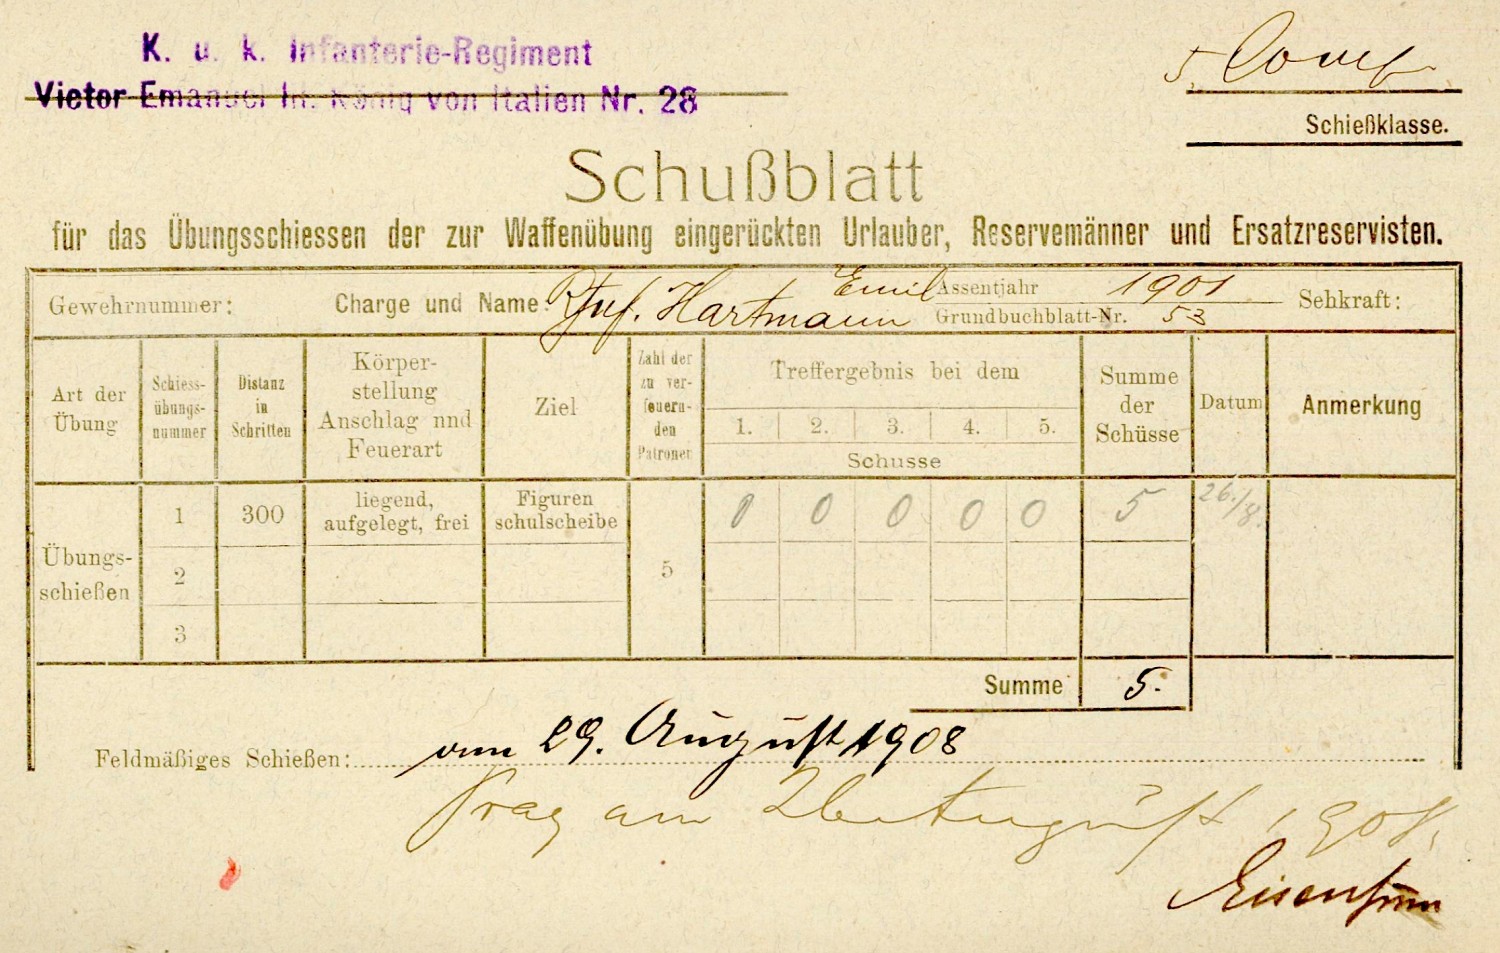 K. u. k. Infanterie-Regiment
Victor Emanuel III. König von Italien Nr. 28
5.
Schießklasse.
Schußblatt
für das Übungsschiessen der zur Waffenübung eingerückten Urlauber, Reservemänner und Ersatzreservisten.
Gewehrnummer: Charge und Name: Hartmann Emil Assentjahr 1901 Sehkraft:
Grundbuchblatt-Nr. 53
Art der Übung
Schiess-übungs-nummer
Distanz in Schritten
Körper-stellung Anschlag nnd Feuerart
Ziel
Zahl der zu ver-feuern-den Patronen
Treffergebnis bei dem
1. 2. 3. 4. 5.
Schusse
Summe der Schüsse
Datum
Anmerkung
Übungs-schießen
1 300 liegend, aufgelegt, frei Figuren schulscheibe 5 0 0 0 0 0 5 26./8.
2
3
Summe 5.
Feldmäßiges Schießen: am 29. August 1908
Prag am 26 August 1908.